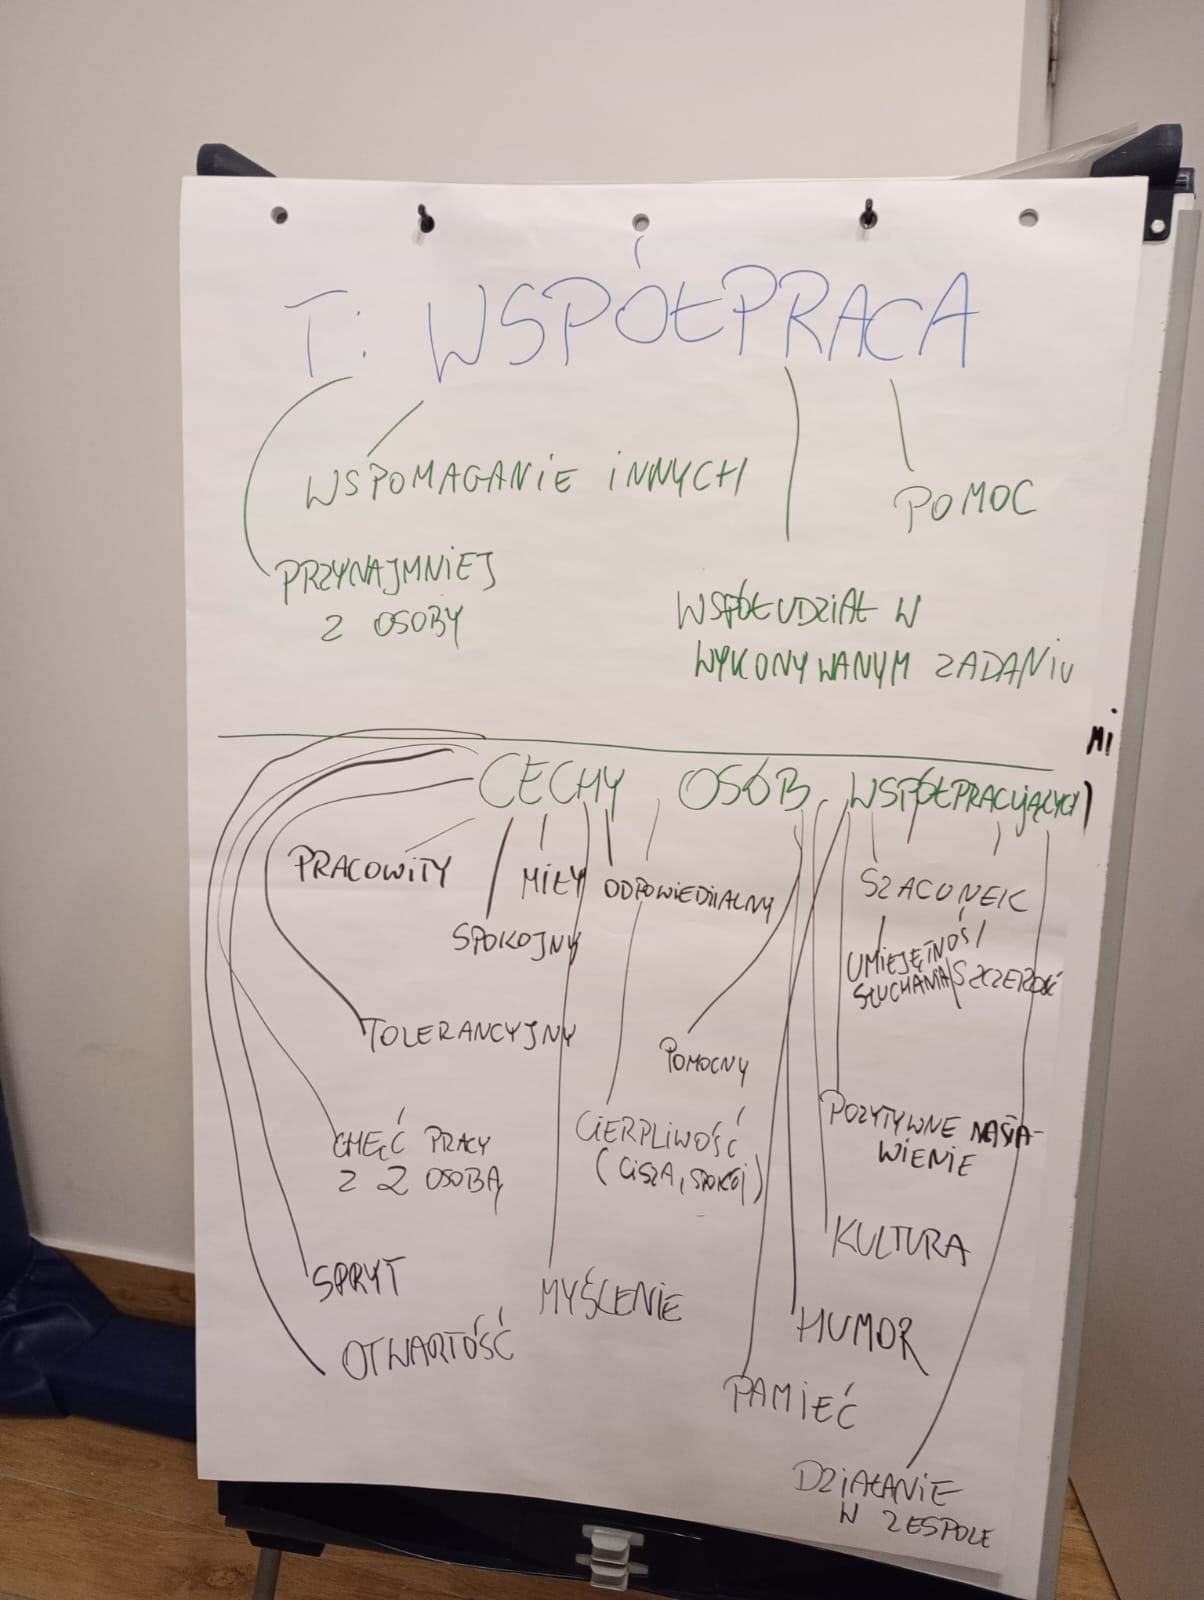 T: WSPÓŁPRACA
WSPOMAGANIE INNYCH
POMOC
PRZYNAJMNIEJ
2 OSOBY
WSPÓŁUDZIAŁ W
WYKONYWANYM ZADANIU
MI
CECHY OSÓB WSPÓŁPRACUJĄCYCH
PRACOWITY
MIŁY
ODPOWIEDZIALNY
SZACUNEK
SPOKOJNY
UMIEJĘTNOŚĆ
SŁUCHANIA
SZCZEROŚĆ
TOLERANCYJNY
POMOCNY
CHĘĆ PRACY
Z 2 OSOBĄ
CIERPLIWOŚĆ
(CISZA, SPOKÓJ)
POZYTYWNE NASTA-
WIENIE
KULTURA
SPRYT
MYŚLENIE
HUMOR
OTWARTOŚĆ
PAMIEĆ
DZIAŁANIE
W ZESPOLE